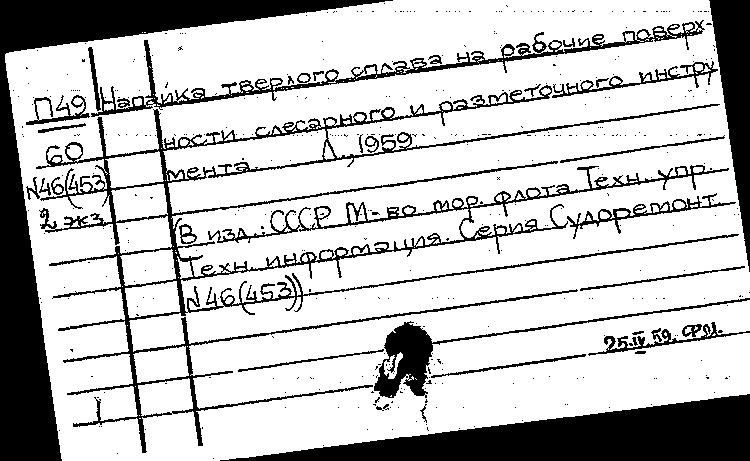 П49 Напайка твердого сплава на рабочие поверх-
60 ности слесарного и разметочного инстру
N46(453) мента. Л., 1959
2 экз.
(В изд.: СССР М-во мор. флота Техн. упр.
Техн. информация. Серия Судоремонт.
N46(453)).
25.IV.59.